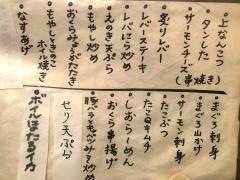 上なんこつ
タンした
サーモンチーズ(串焼き)
炙りレバー
レバーステーキ
レバにら炒め
えのき天ぷら
もやし炒め
おくらしょうがたたき
もやしときのこ
ホイル焼き
なすあげ
まぐろ刺身
まぐろ山かけ
サーモン刺身
たこぶつ
たこQキムチ
しおらーめん
おくら串揚げ
豚バラとキャベツみそ炒め
せり天ぷら
ボイルほたるイカ